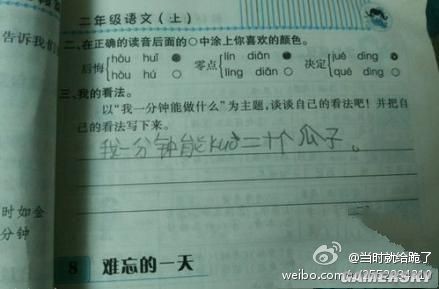 告诉我们
二年级语文(上)
二、在正确的读音后面的○中涂上你喜欢的颜色。
后悔 hòu huǐ 零点 lín diǎn 决定 jué dìng
hòu hú ○ líng diǎn ○ qué dìng ○
三、我的看法。
以“我一分钟能做什么”为主题,谈谈自己的看法吧!并把自
己的看法写下来。
我一分钟能kuò二十个瓜子。
时如金
分钟
8 难忘的一天
@当时就给跪了
weibo.com/u/2552834210
GAMERSKY